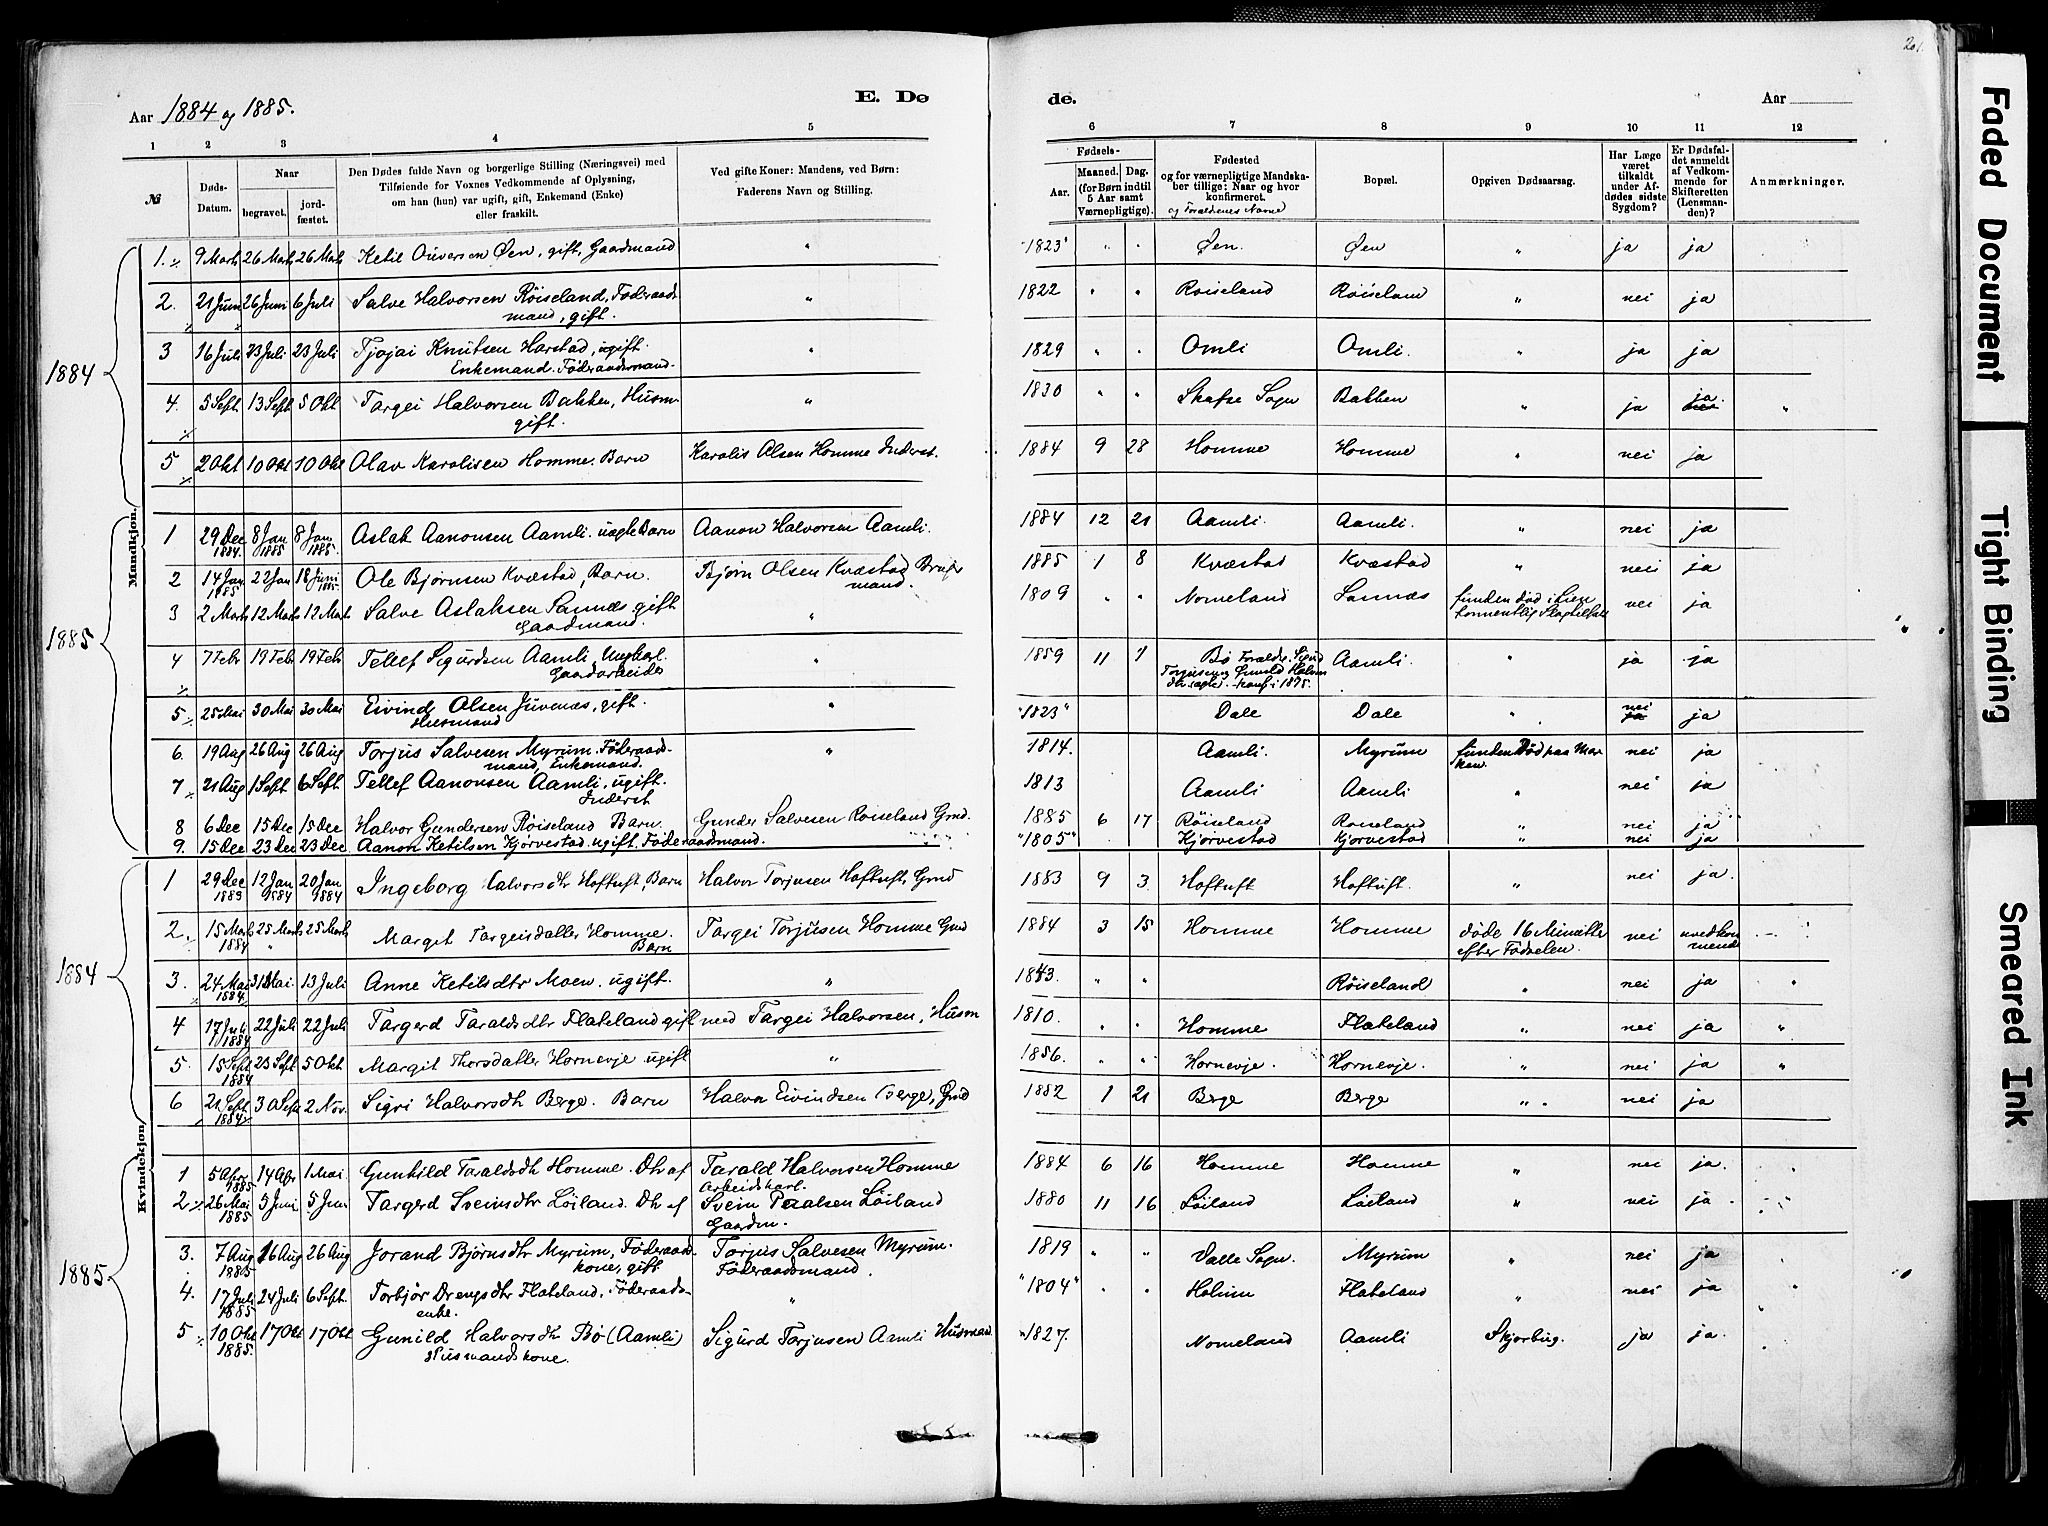 201
Aar 1884 og 1885.
E. Dø
de.
Aar
1 2 3 4 5 6 7 8 9 10 11 12
№
Døds-Datum.
Naar
begravet.
jord-fæstet.
Den Dødes fulde Navn og borgerlige Stilling (Næringsvei) med
Tilføiende for Voxnes Vedkommende af Oplysning,
om han (hun) var ugift, gift, Enkemand (Enke)
eller fraskilt.
Ved gifte Koner: Mandens, ved Børn:
Faderens Navn og Stilling.
Fødsels-
Aar.
Maaned. Dag.
(for Børn indtil
5 Aar samt
Værnepligtige).
Fødested
og for værnepligtige Mandska-
ber tillige: Naar og hvor
konfirmeret.
og Forældrenes Navne
Bopæl.
Opgiven Dødsaarsag.
Har Læge
været
tilkaldt
under Af-
dødes sidste
Sygdom?
Er Dødsfal-
det anmeldt
af Vedkom-
mende for
Skifteretten
(Lensman-
den)?
Anmærkninger.
Mandkjøn.
1884
1. 9 Marts 26 Marts 26 Marts Ketil Øen, gift, Gaardmand " "1823" " " Øen. Øen " ja ja
2. 21 Juni 26 Juni 6 Juli Salve Halvorsen Røiseland, Føderaads
mand, gift. " 1822 " " Røiseland Røiseland " nei ja
3 16 Juli 23 Juli 23 Juli Knutsen Harstad, ugift.
Enkemand. Føderaadsmand. " 1829 " " Omli Omli. " ja ja
4. 5 Sept 13 Sept 5 Okt Targei Halvorsen Bakken, Husm
gift. " 1830 " " Skafse Sogn Bakken " ja ja "
5 2 Okt 10 Okt 10 Okt Olav Karolisen Homme. Barn Karolis Olsen Homme Inderst. 1884 9 28 Homme Homme " nei ja
1885
1 29 Dec 1884. 8 Jan 1885 8 Jan 1885. Aslak Aanonsen Aamli. uægte Barn Aanon Halvorsen Aamli. 1884 12 21 Aamli. Aamli. " nei ja
2 14 Jan 1985 22 Jan 18 Juni 1885. Ole Bjørnsen Kvæstad, Barn. Bjørn Olsen Kvæstad Bruger
mand. 1885 1 8 Kvæstad Kvæstad " nei ja
3 2 Marts 12 Marts 12 Marts Salve Aslaksen Sannæs. gift
Gaardmand. " 1809 " " Nomeland Sannæs funden død i nei ja
4 7 Febr 19 Febr 19 Febr Tellef Sigurdsen Aamli, Ungkarl.
Gaardarbeider " 1859 11 7 Bø Forældre. Sigurd
Torjusen og Gunild Halvors
dtr ægte. konf. i 1875. Aamli. " ja ja
5 25 Mai 30 Mai 30 Mai Eivind Olsen Juvenæs, gift.
Husmand " "1823" Dale Dale " nei ja ja
6. 19 Aug 26 Aug 26 Aug Torjus Salvesen Myrum. Føderaads-
mand, Enkemand. " 1814. Aamli. Myrum funden Død paa Mar
ken. nei ja
7 21 Aug 1 Sept 6 Sept Tellef Aanonsen Aamli, ugift.
Inderst 1813 Aamli Aamli " nei ja
8 6 Dec 15 Dec 15 Dec Halvor Gundersen Røiseland Barn. Gunder Salvesen Røiseland Gmd. 1885 6 17 Røiseland Røiseland " nei ja
9. 15 Dec 23 Dec 23 Dec Aanon Ketilsen Kjørvestad. ugift. Føderaadsmand. "1805" Kjørvestad Kjørvestad " nei ja
Kvindekjøn
1884
1 29 Dec 1883 12 Jan 1884 20 Jan 1884 Ingeborg Halvorsdtr Hoftuft, Barn Halvor Torjusen Hoftuft, Gmd 1883 9 3. Hoftuft Hoftuft. " nei ja.
2 15 Marts 1884 25 Marts " 25 Marts Margit Targeisdatter Homme.
Barn Targei Torjusen Homme Gmd 1884 3 15 Homme Homme døde 16 Minutter
efter Fødselen. nei uvedkom
mende
3. 24 Mai 1884. 31 Mai. 13 Juli Anne Ketilsdtr Moen. ugift. " 1843. " " Røiseland " nei ja "
4 17 Juli 1884 22 Juli 22 Juli Targerd Taraldsdtr Flateland gift med Targei Halvorsen, Husm 1810. " " Homme Flateland " nei ja "
5. 15 Sept 1884 23 Sept 5 Okt Margit Thorsdatter Hornevje ugift " 1856. " " Hornevje. Hornevje. " nei ja "
6 21 Sept 1884 30 Sept 2 Nov. Sigri Halvorsdtr Berge. Barn Halvor Eivindsen Berge, Gmd 1882 1 21 Berge Berge " nei ja
1885
1 5 Apr 1885 14 Apr 1 Mai Gunhild Taraldsdtr Homme. Dtr af Tarald Halvorsen Homme
Arbeidskarl. 1884 6 16 Homme Homme " nei ja.
2 26 Mai 1885 5 Juni 5 Juni Targerd Sveinsdtr Løiland. Dtr af Svein Paalsen Løiland
Gaardm. 1880 11 16 Løiland Løiland " nei ja
3. 7 Aug 1885 16 Aug 26 Aug Jorand Bjørnsdtr Myrum, Føderaads-
kone, gift Torjus Salvesen Myrum.
Føderaadsmand. 1819 " " Valle Sogn. Myrum " nei ja
4. 17 Juli 1885 24 Juli 6 Sept. Torbjør Drengsdtr Flateland, Føderaads-
enke. " "1804" Holmen Flateland " nei ja
5 10 Okt 1885. 17 Okt 17 Okt Gunild Halvorsdtr Bø (Aamli)
Husmandskone. Sigurd Torjusen Aamli Husman 1827. Nomeland Aamli Skjørbug. ja ja.
Faded Document
Tight Binding
Smeared Ink